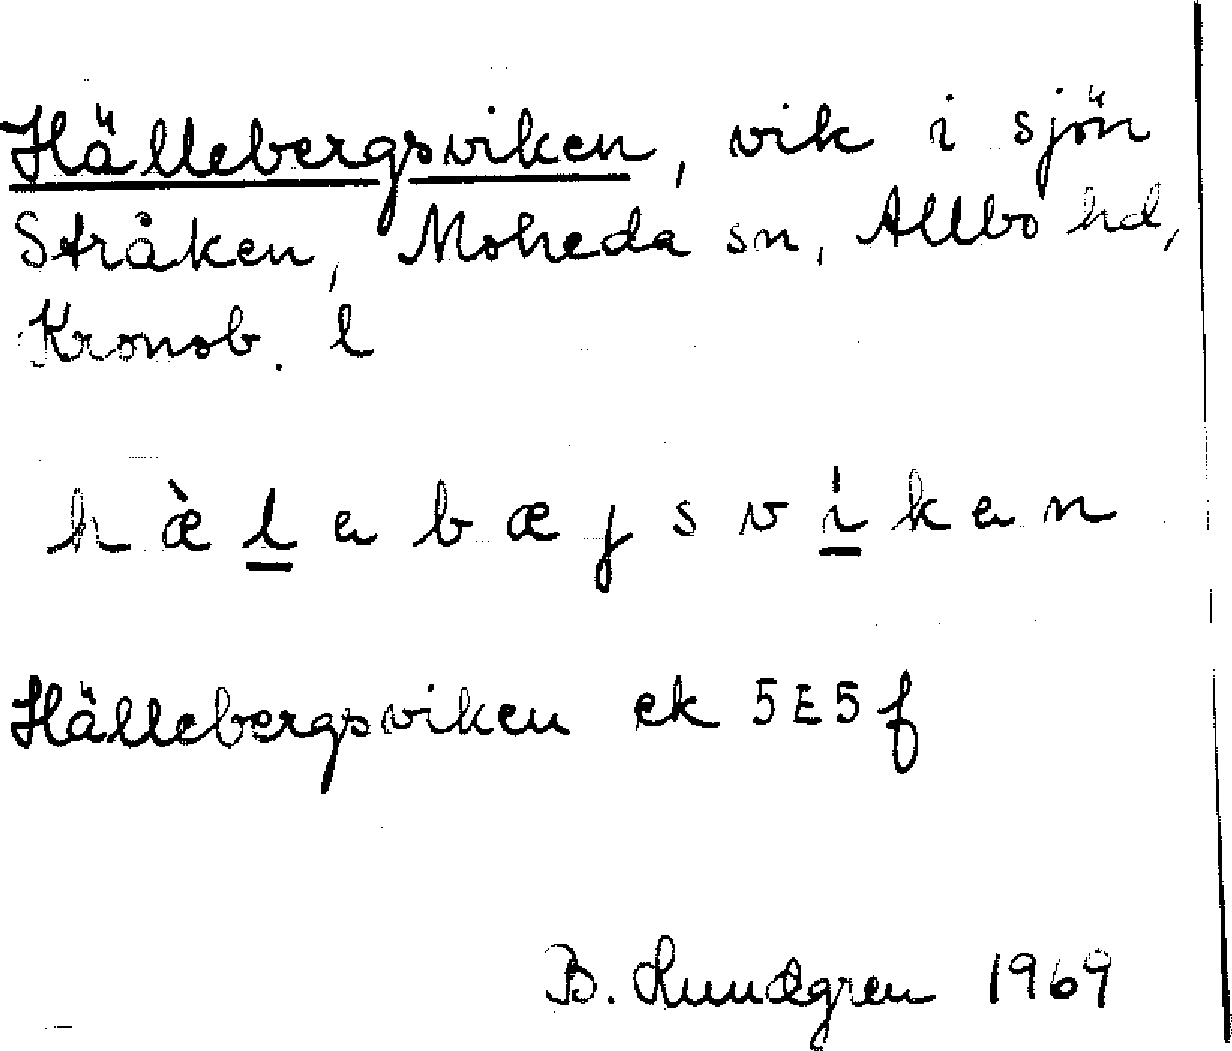 Hällebergsviken, vik i sjön
Stråken, Moheda sn, Allbo hd,
Kronob. l
h æ̀ l̲ a b æ j s v i̲̍ k a n
Hällebergsviken ek 5E5f
B. Lundgren 1969